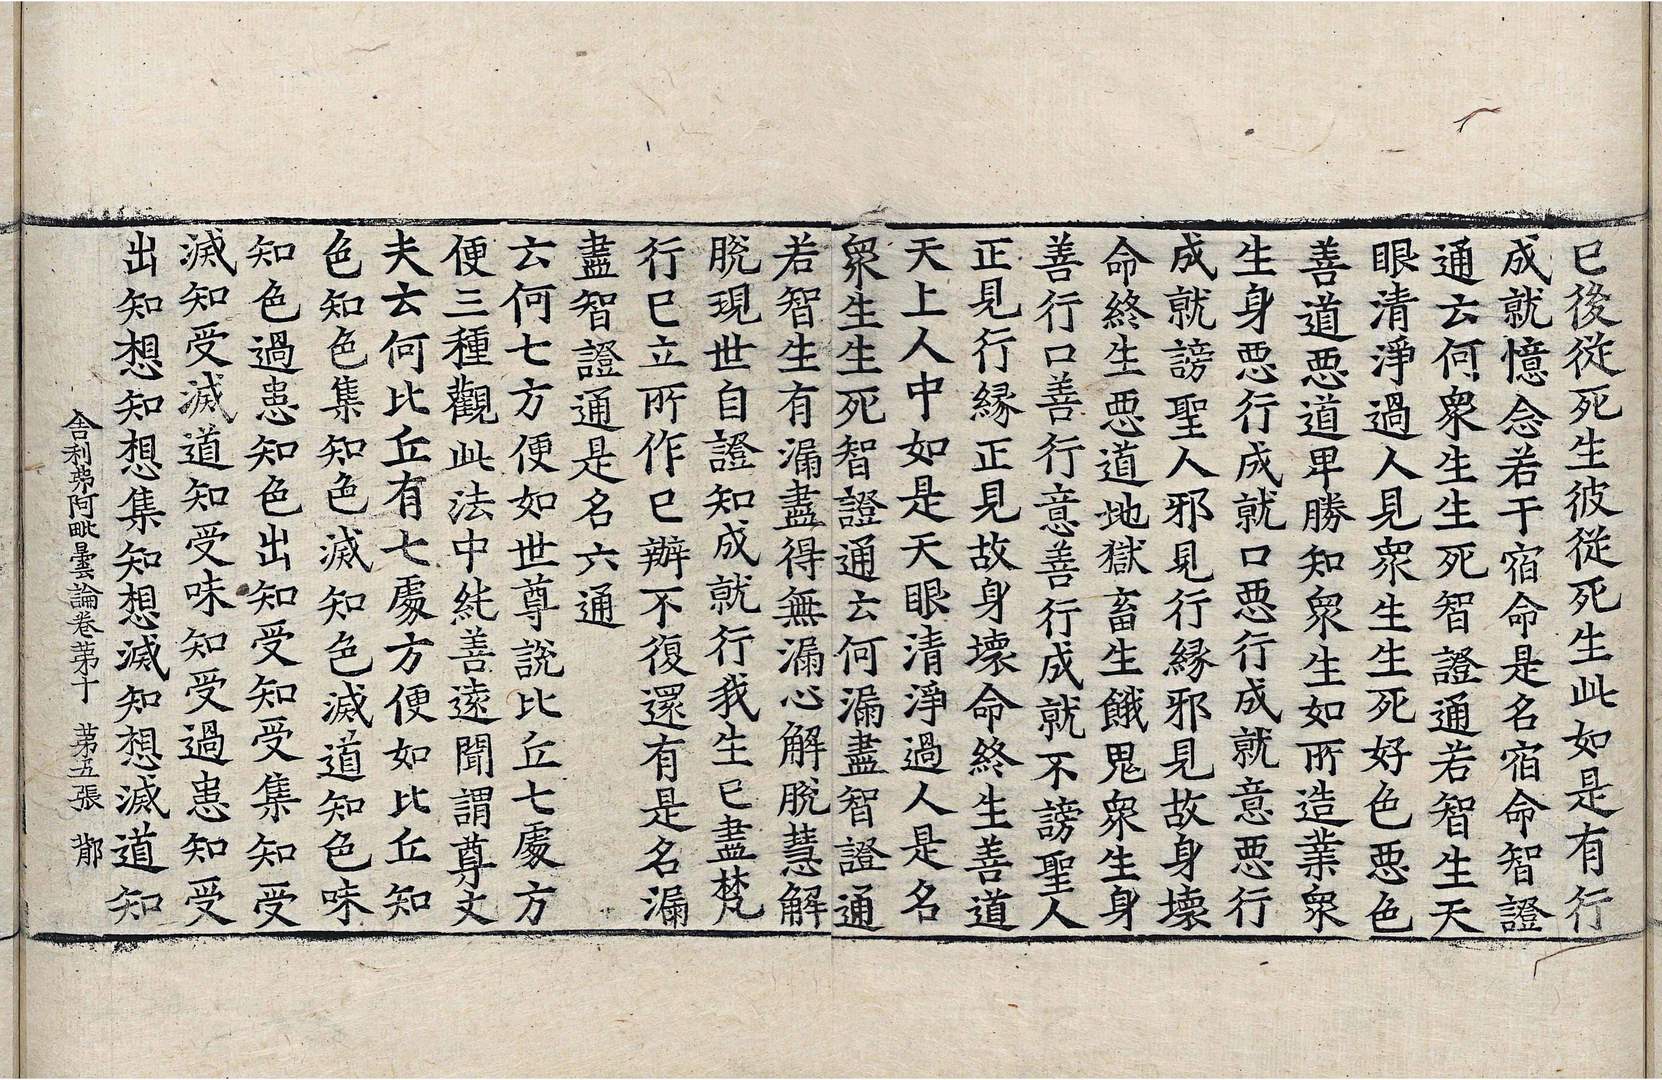 已後從死生彼從死生此如是有行
成就憶念若干宿命是名宿命智證
通云何衆生生死智證通若智生天
眼清淨過人見衆生生死好色惡色
善道惡道卑勝知衆生如所造業衆
生身惡行成就口惡行成就意惡行
成就謗聖人邪見行縁邪見故身壞
命終生惡道地獄畜生餓鬼衆生身
善行口善行意善行成就不謗聖人
正見行縁正見故身壞命終生善道
天上人中如是天眼清淨過人是名
衆生生死智證通云何漏盡智證通
若智生有漏盡得無漏心解脫慧解
脫現世自證知成就行我生已盡梵
行已立所作已辦不復還有是名漏
盡智證通是名六通
云何七方便如世尊說比丘七處方
便三種觀此法中純善遠聞謂尊丈
夫云何比丘有七處方便如比丘知
色知色集知色滅知色滅道知色味
知色過患知色出知受知受集知受
滅知受滅道知受味知受過患知受
出知想知想集知想滅知想滅道知
舍利弗阿毗曇論卷第十　第五張